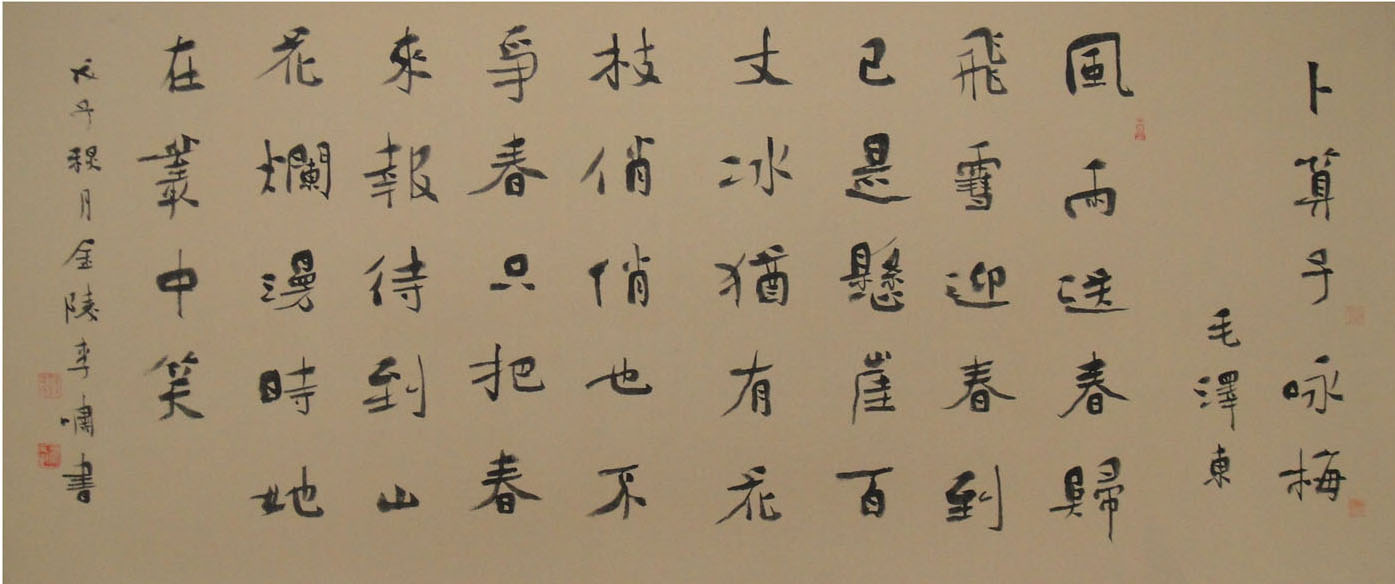 卜算子咏梅
毛澤東
風雨送春歸
飛雪迎春到
已是懸崖百
丈冰猶有花
枝俏俏也不
爭春只把春
來報待到山
花爛漫時她
在叢中笑
戊子穐月金陵李嘯書